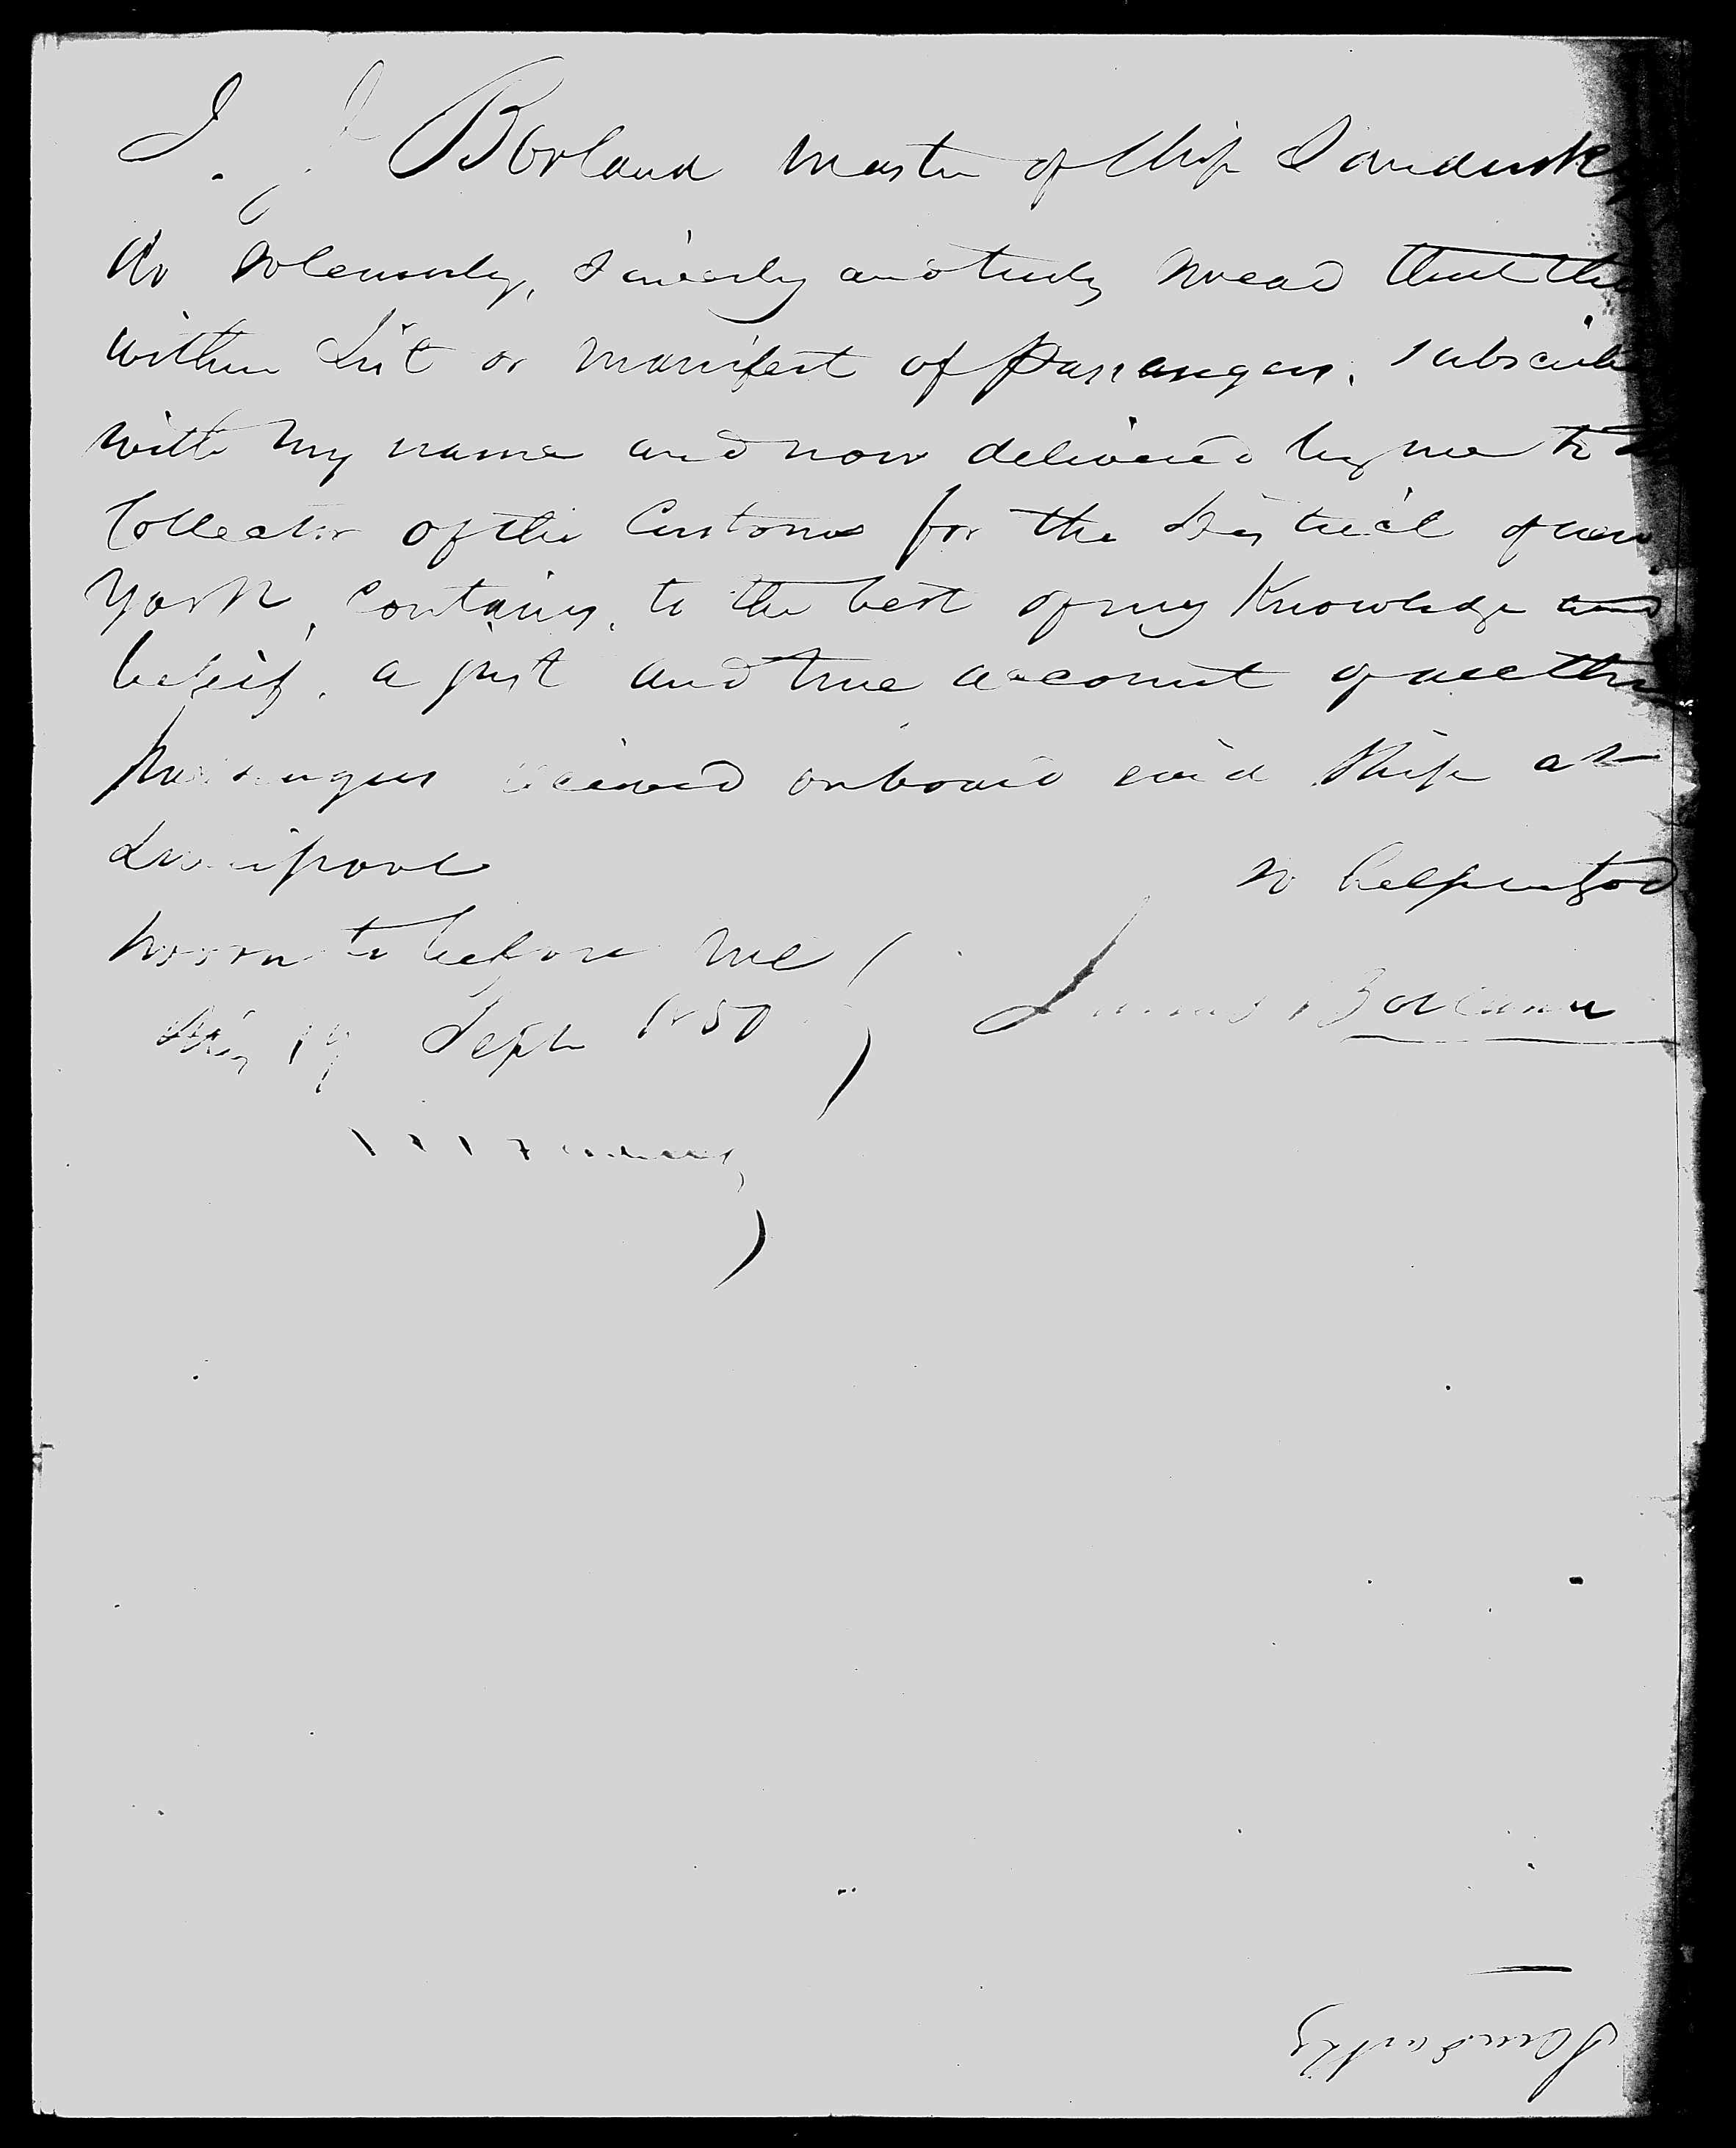 I, J Borland master of Ship Sandusky
do solemnly, Sincerly and truly swear that the
within List or manifest of passangers, subscribed
with my name and now delivered by me to the
Collector of the Customs for the District of New
York, contains, to the best of my Knowledge and
beleif, a just and true account of all the
passengers received on board said Ship at
Liverpool
so help me God
Sworn to before me
this 19 Septr 1850
James Borland
Sandusky